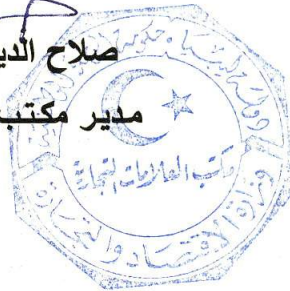 صلاح الدي
مدير مكتب
دولة ليبيا
مكتب العلامات التجارية
وزارة الاقتصاد والتجارة